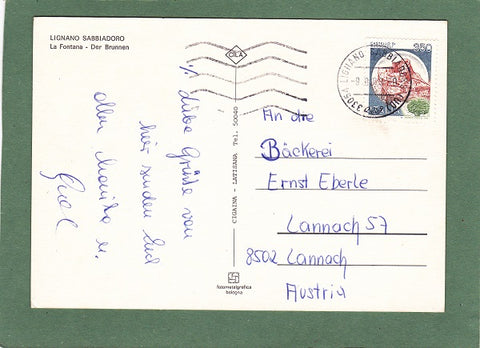 LIGNANO SABBIADORO
La Fontana - Der Brunnen
CILA
Liebe Grüße von
hier senden Euch
allen Monika u.
CIGAINA - LATISANA Tel. 50040
fotometalgrafica
bologna
350
33054 LIGNANO SABBIADORO (UD)
An die
Bäckerei
Ernst Eberle
Lannach 57
8502 Lannach
Austria